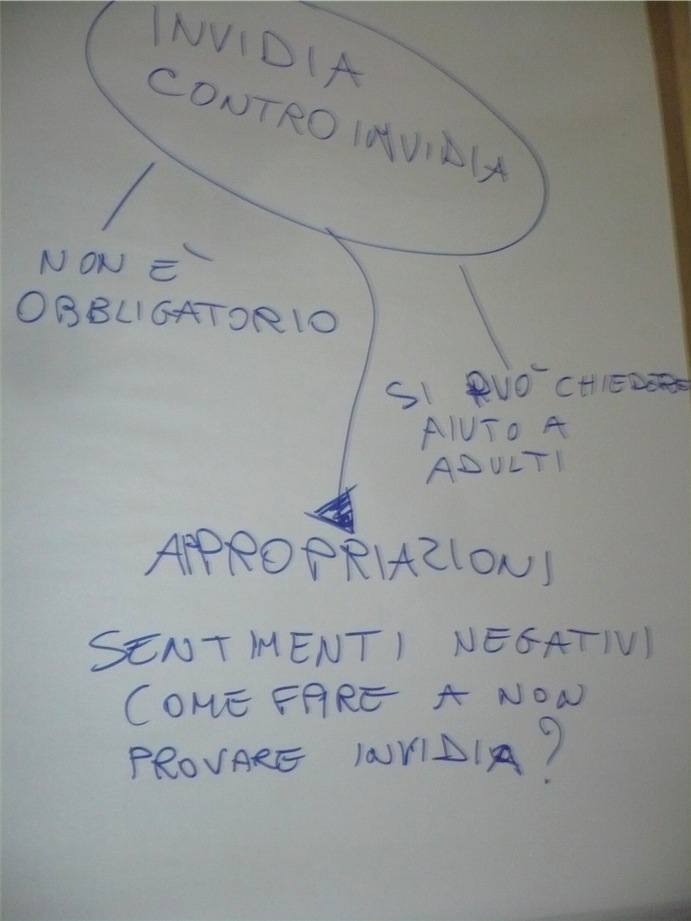 INVIDIA
CONTROINVIDIA
NON È
OBBLIGATORIO
SI PUÒ CHIEDERE
AIUTO A
ADULTI
APPROPRIAZIONI
SENTIMENTI NEGATIVI
COME FARE A NON
PROVARE INVIDIA?